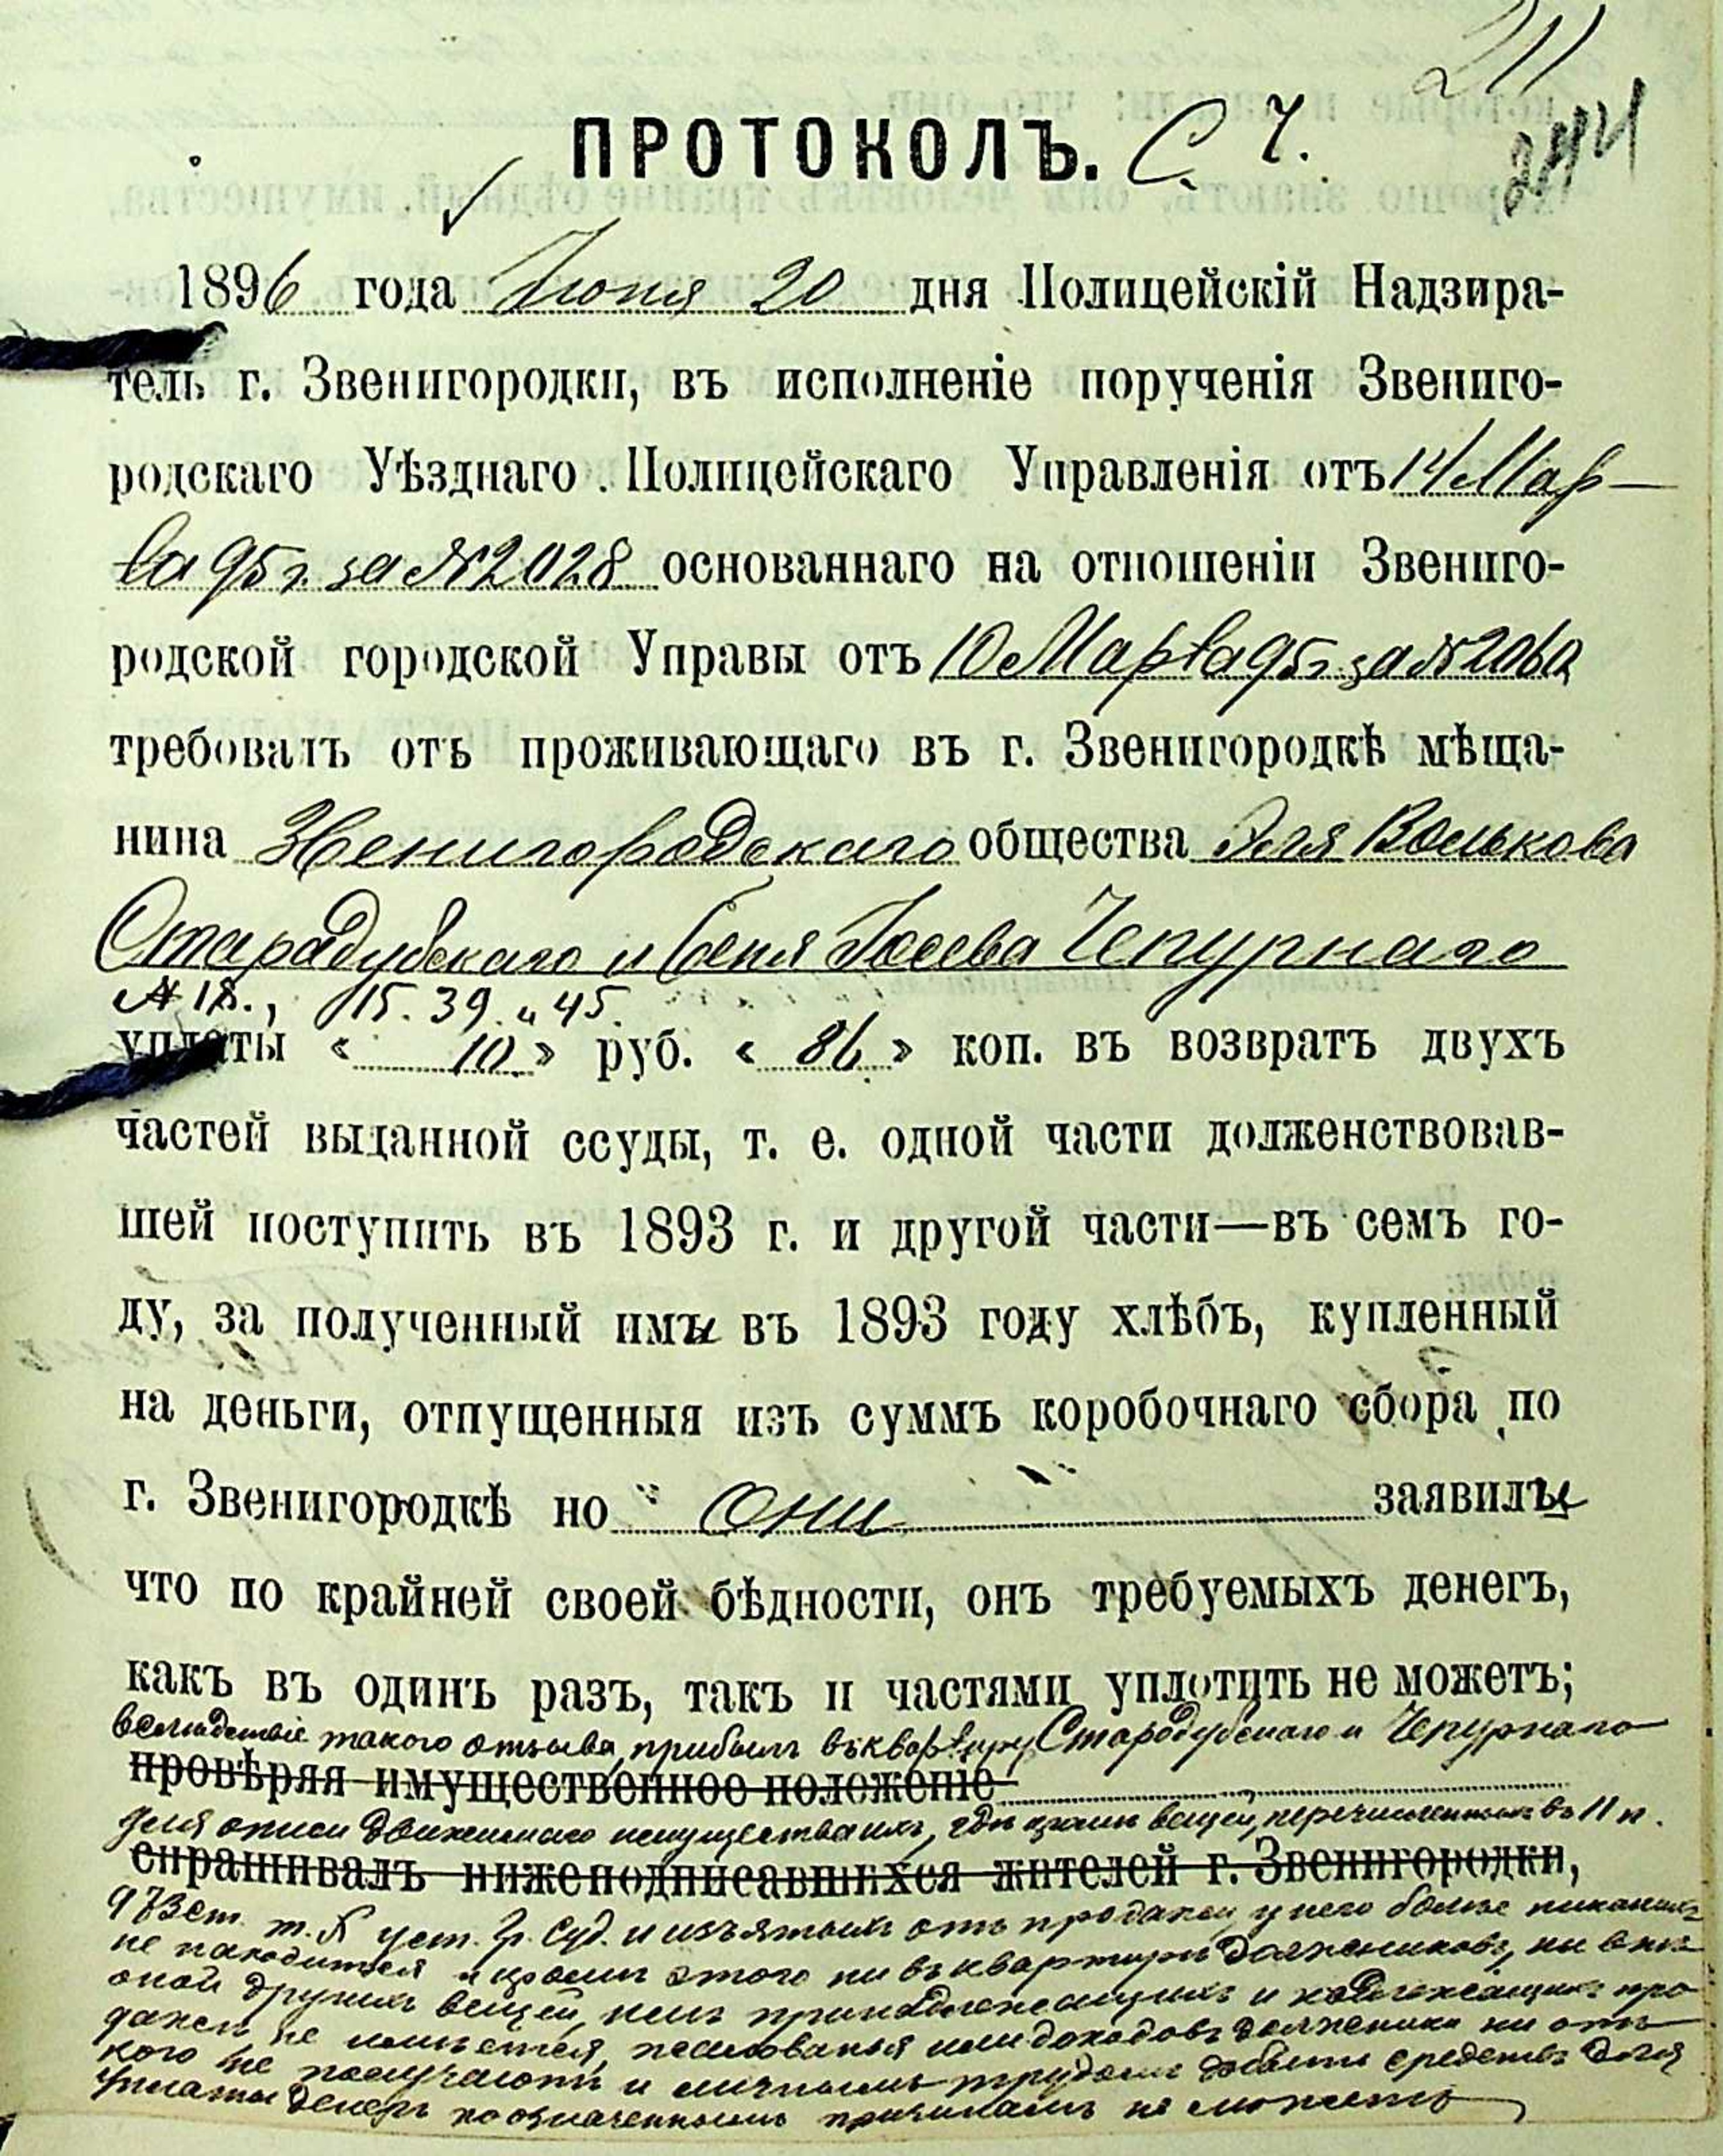 211
244
ПРОТОКОЛЪ. С. Ч.
1896 года Июня 20 дня Полицейскій Надзира-
тель г. Звенигородки, въ исполненіе порученія Звениго-
родскаго Уѣзднаго Полицейскаго Управленія отъ 14 Мар-
та 95 г. за № 2028 основаннаго на отношеніи Звениго-
родской городской Управы отъ 10 Марта 95 г. за № 2060
требовалъ отъ проживающаго въ г. Звенигородкѣ мѣща-
нина Звенигородскаго общества Эля Волькова
Старадубскаго и Беня Іосева Чепурнаго
№ 18., 15. 39. и 45.
уплаты « 10 » руб. « 86 » коп. въ возвратъ двухъ
частей выданной ссуды, т. е. одной части долженствовав-
шей поступить въ 1893 г. и другой части—въ семъ го-
ду, за полученный имы въ 1893 году хлѣбъ, купленный
на деньги, отпущенныя изъ суммъ коробочнаго сбора по
г. Звенигородкѣ но они заявилы
что по крайней своей бѣдности, онъ требуемыхъ денегъ,
какъ въ одинъ разъ, такъ и частями уплотить не можетъ;
вслѣдствіе такого отзыва, прибылъ въ квартиру Стародубскаго и Чепурнаго
провѣряя имущественное положеніе
для описи движимаго имущества ихъ, гдѣ кромѣ вещей, перечисленныхъ въ 11 п.
спрашивалъ нижеподписавшихся жителей г. Звенигородки,
973 ст. т. уст. гр. суд. и изъятыхъ отъ продажи, у него болѣе никакихъ
не находится и кромѣ этого ни въ квартирѣ должниковъ, ни внѣ
оной другихъ вещей, имъ принадлежащихъ и подлежащихъ про-
дажѣ не имѣется, жалованья или доходовъ должники ни отъ
кого не получаютъ и личнымъ трудомъ добыть средствъ для
уплаты денегъ по означеннымъ причинамъ не можетъ